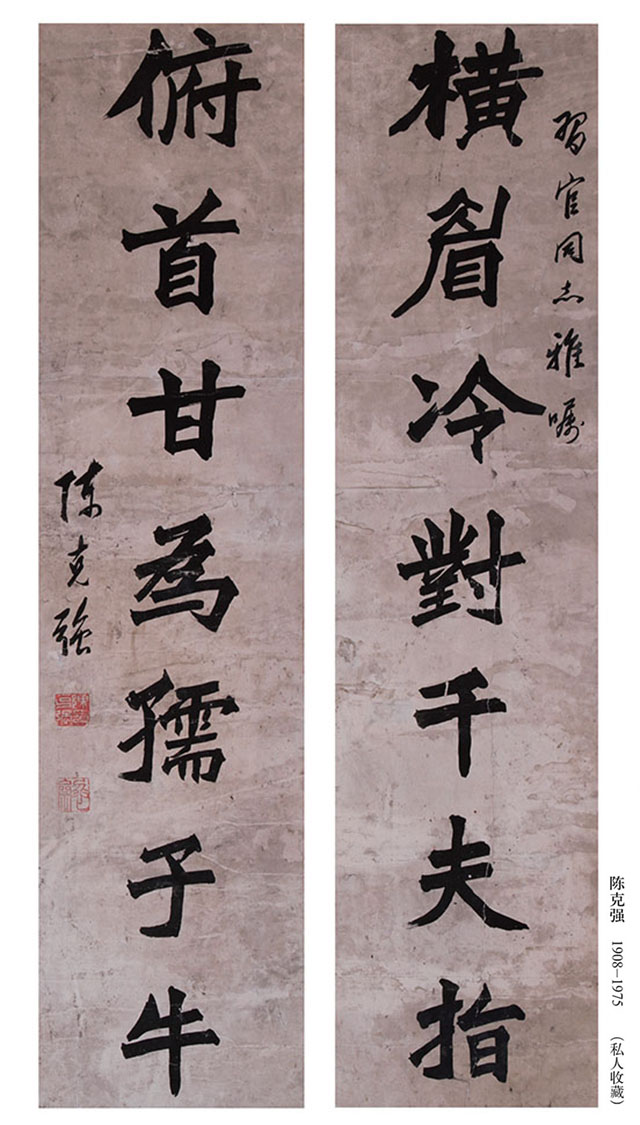 習官同志雅嘱
橫眉冷對千夫指
俯首甘為孺子牛
陳克強
陈克强 1908—1975 （私人收藏）